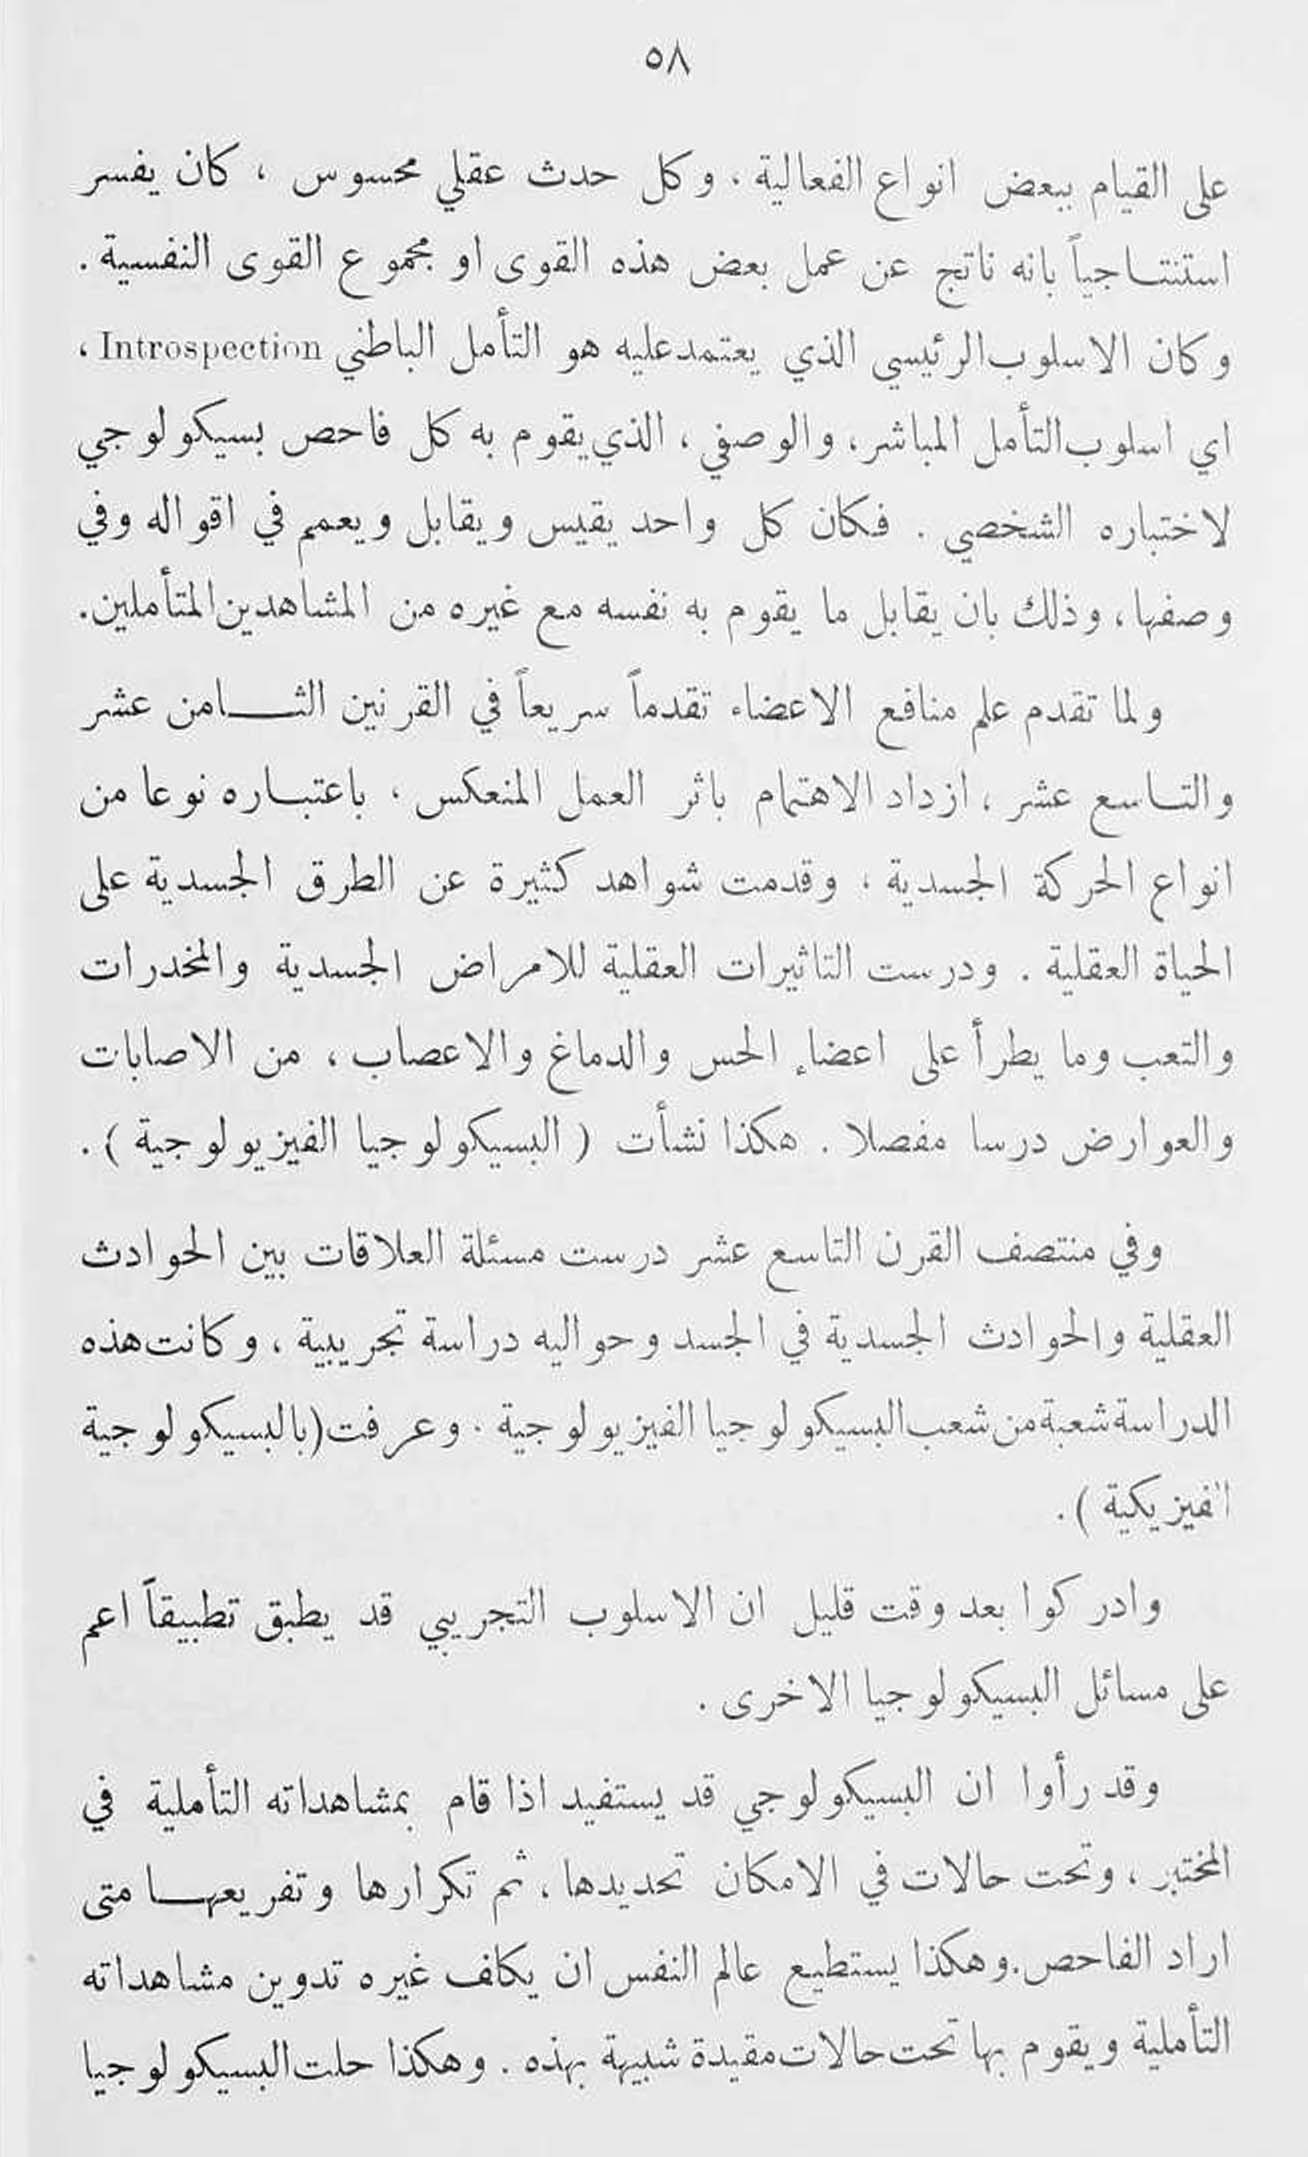 ٥٨
على القيام ببعض انواع الفعالية . وكل حدث عقلي محسوس ، كان يفسر
استنتاجياً بانه ناتج عن عمل بعض هذه القوى او مجموع القوى النفسية .
وكان الاسلوب الرئيسي الذي يعتمد عليه هو التأمل الباطني Introspection ،
اي اسلوب التأمل المباشر ، والوصفي ، الذي يقوم به كل فاحص بسيكولوجي
لاختباره الشخصي . فكان كل واحد يقيس ويقابل ويعمم في اقواله وفي
وصفها ، وذلك بان يقابل ما يقوم به نفسه مع غيره من المشاهدين المتأملين .
ولما تقدم علم منافع الاعضاء تقدماً سريعاً في القرنين الثامن عشر
والتاسع عشر ، ازداد الاهتمام باثر العمل المنعكس ، باعتباره نوعا من
انواع الحركة الجسدية ، وقدمت شواهد كثيرة عن الطرق الجسدية على
الحياة العقلية . ودرست التاثيرات العقلية للامراض الجسدية والمخدرات
والتعب وما يطرأ على اعضاء الحس والدماغ والاعصاب ، من الاصابات
والعوارض درسا مفصلا . هكذا نشأت ( البسيكولوجيا الفيزيولوجية ) .
وفي منتصف القرن التاسع عشر درست مسئلة العلاقات بين الحوادث
العقلية والحوادث الجسدية في الجسد وحواليه دراسة تجريبية ، وكانت هذه
الدراسة شعبة من شعب البسيكولوجيا الفيزيولوجية . وعرفت ( بالبسيكولوجية
الفيزيكية ) .
وادركوا بعد وقت قليل ان الاسلوب التجريبي قد يطبق تطبيقاً اعم
على مسائل البسيكولوجيا الاخرى .
وقد رأوا ان البسيكولوجي قد يستفيد اذا قام بمشاهداته التأملية في
المختبر ، وتحت حالات في الامكان تحديدها ، ثم تكرارها وتفريعها متى
اراد الفاحص . وهكذا يستطيع عالم النفس ان يكلف غيره تدوين مشاهداته
التأملية ويقوم بها تحت حالات مقيدة شبيهة بهذه . وهكذا حلت البسيكولوجيا